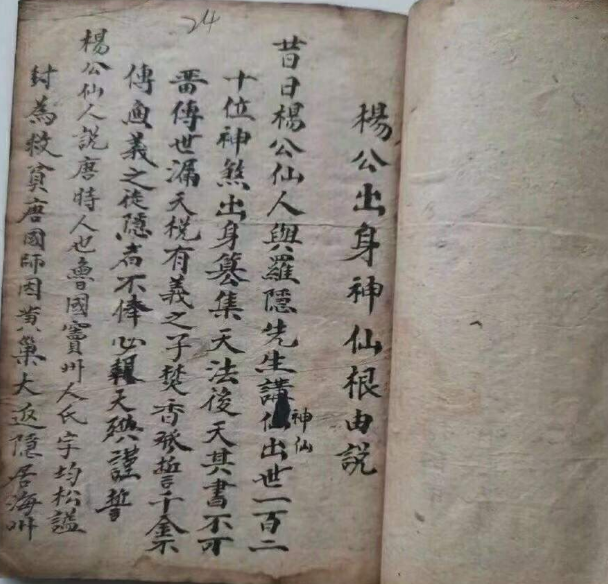 楊公出身神仙根由説
昔日楊公仙人與羅隱先生講神仙出世一百二
十位神煞出身篡集天法後天其書不可
畨傳世漏天梲有義之子焚香發誓千金不
傳無義之徒隱者不俸心報天殃謹誓
楊公仙人説唐時人也魯國竇州人氏字均松謚
封為救貧唐國師因黄巢大返隱居海州
24